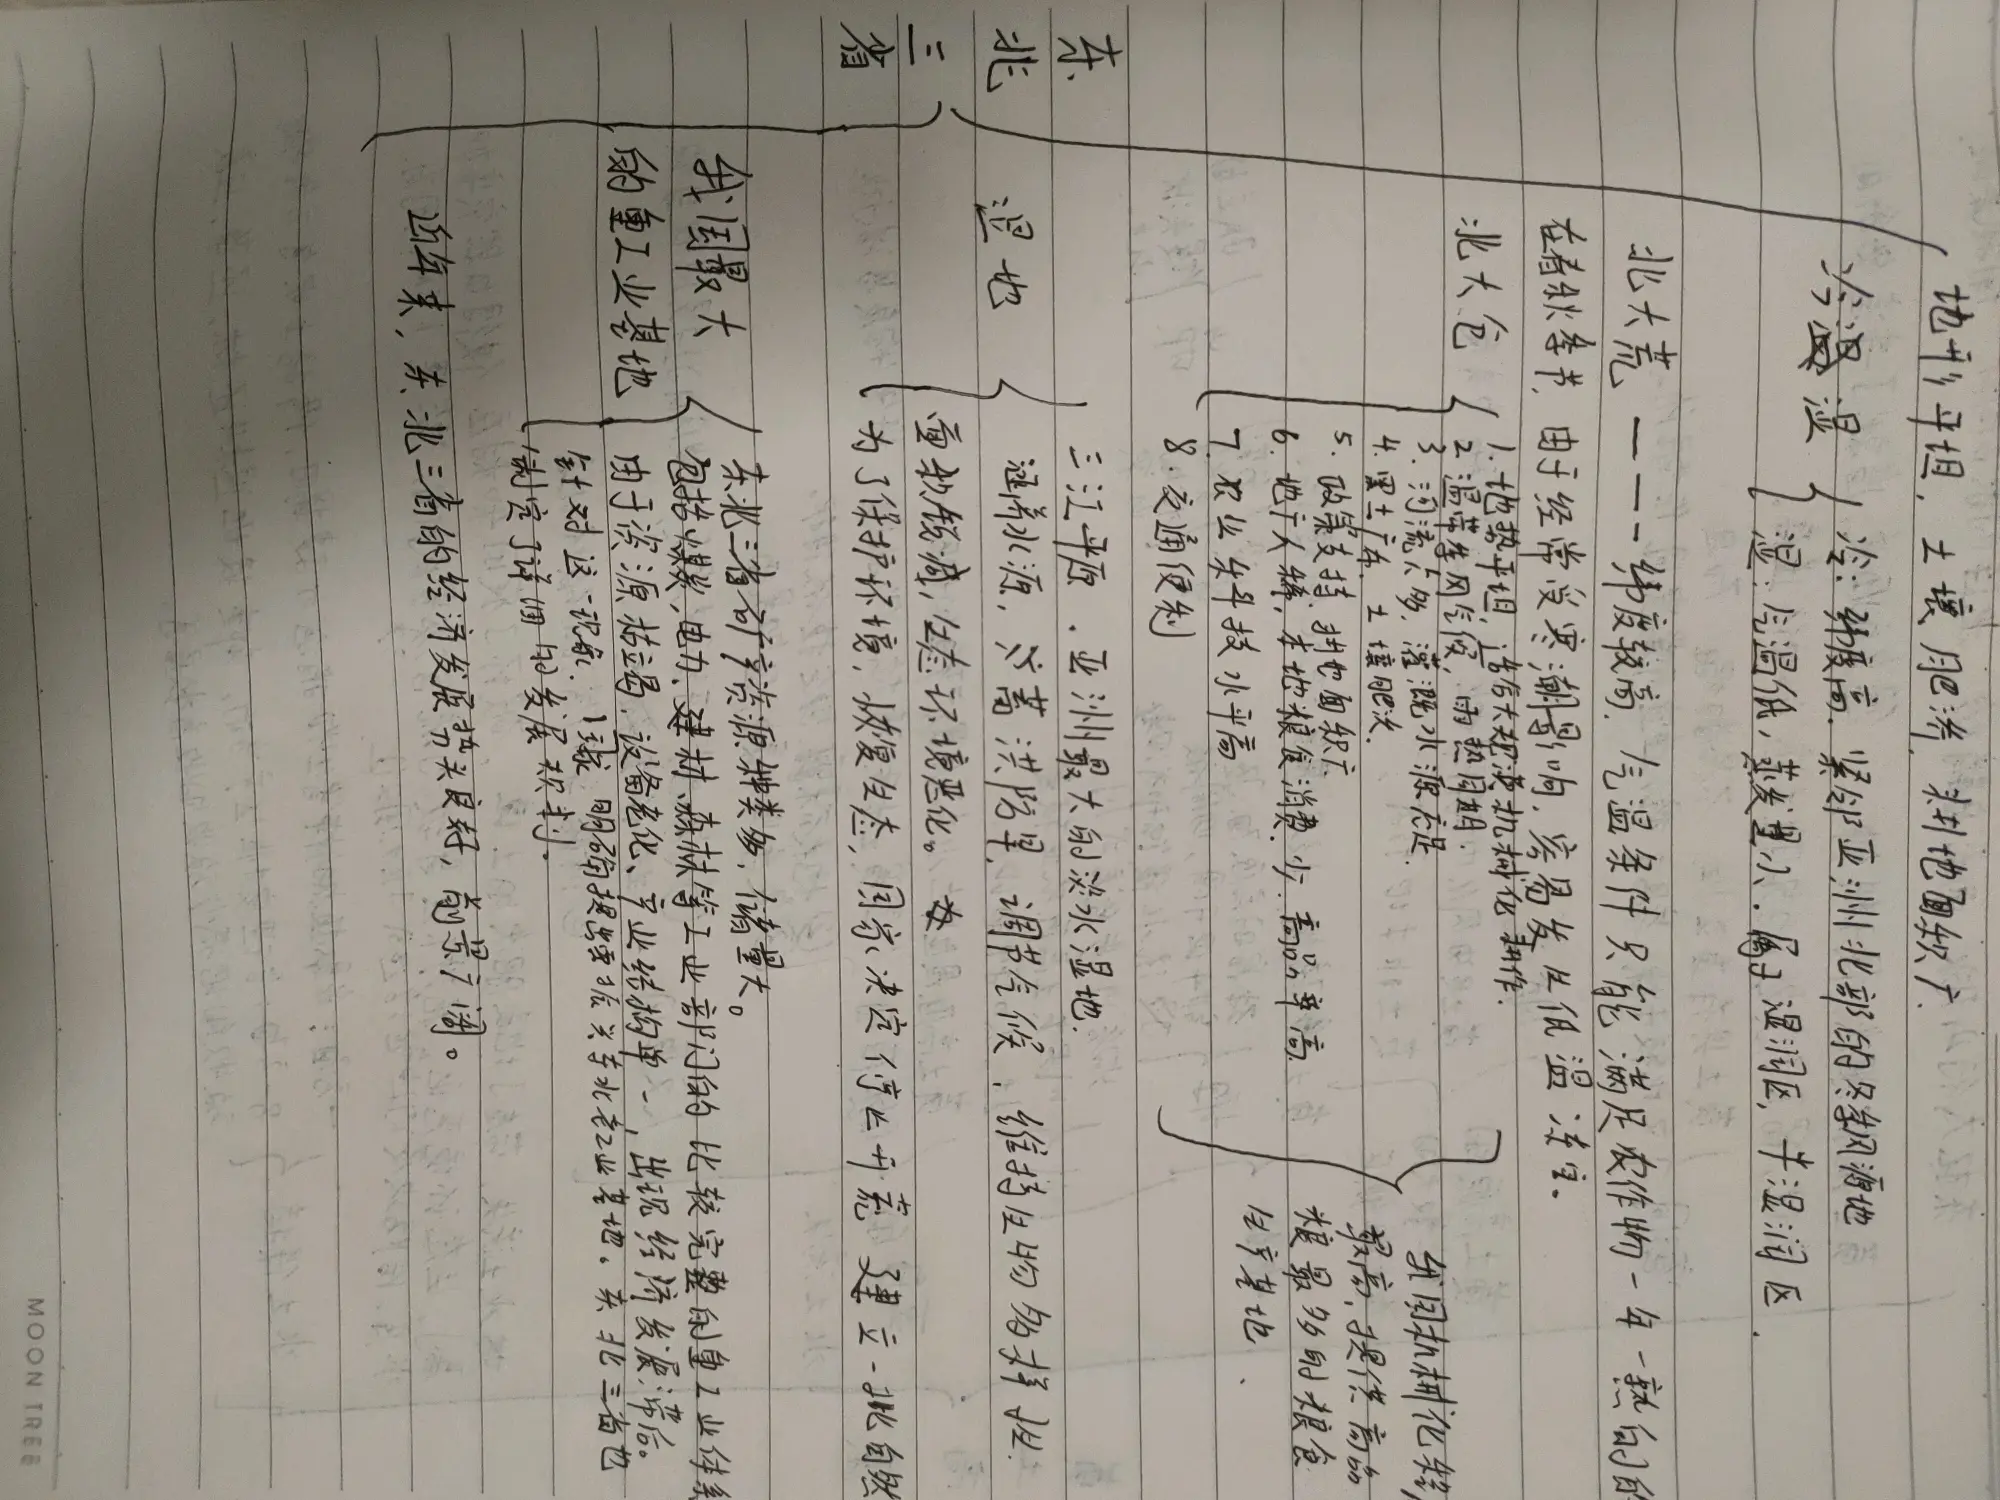 地形平坦，土壤肥沃，耕地面积广.
冷湿
冷：纬度高，紧邻亚洲北部的冬季风源地
湿：气温低，蒸发量小，属于湿润区，半湿润区.
北大荒 ———— 纬度较高，气温条件只能满足农作物一年一熟的
在春秋季节，由于经常受寒潮影响，容易发生低温冻害.
北大仓
1. 地势平坦，适合大规模机械化耕作.
2. 温带季风气候，雨热同期.
3. 河流众多，灌溉水源充足.
4. 黑土广布，土壤肥沃.
5. 政策支持，耕地面积广
6. 地广人稀，本地粮食消费少，商品率高
7. 农业科技水平高
8. 交通便利
我国机耕化率
较高，提供商品
粮最多的粮食
生产基地.
东北三省
湿地
三江平原，亚洲最大的淡水湿地.
涵养水源，分蓄洪防旱，调节气候，维持生物多样性.
面积锐减，生态环境恶化。
为了保护环境，恢复生态，国家决定停止开荒，建立一批自然
我国最大
的重工业基地
东北三省矿产资源种类多，储量大。
包括煤炭，电力，建材，森林等工业部门的比较完整的重工业体系
由于资源枯竭，设备老化、产业结构单一，出现经济发展滞后。
针对这一现象，国家明确提出振兴东北老工业基地，东北三省也
制定了详细的发展规划.
近年来，东北三省的经济发展势头良好，前景广阔。
MOON TREE